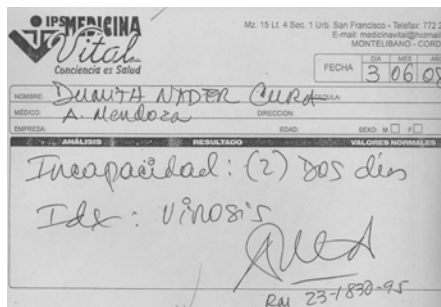 IPS MEDICINA
Vital
Conciencia es Salud
Mz. 15 Lt. 4 Sec. 1 Urb. San Francisco - Telefax: 772 2
E-mail: medicinavital@hotmail
MONTELIBANO - CORD
FECHA DIA MES AÑO
3 06 08
NOMBRE: NADER CURA CEDULA:
MÉDICO: A. Mendoza DIRECCION:
EMPRESA: EDAD: SEXO: M F
ANÁLISIS RESULTADO VALORES NORMALES
Incapacidad: (2) Dos días
Idx: Virosis
RM 23-1830-95